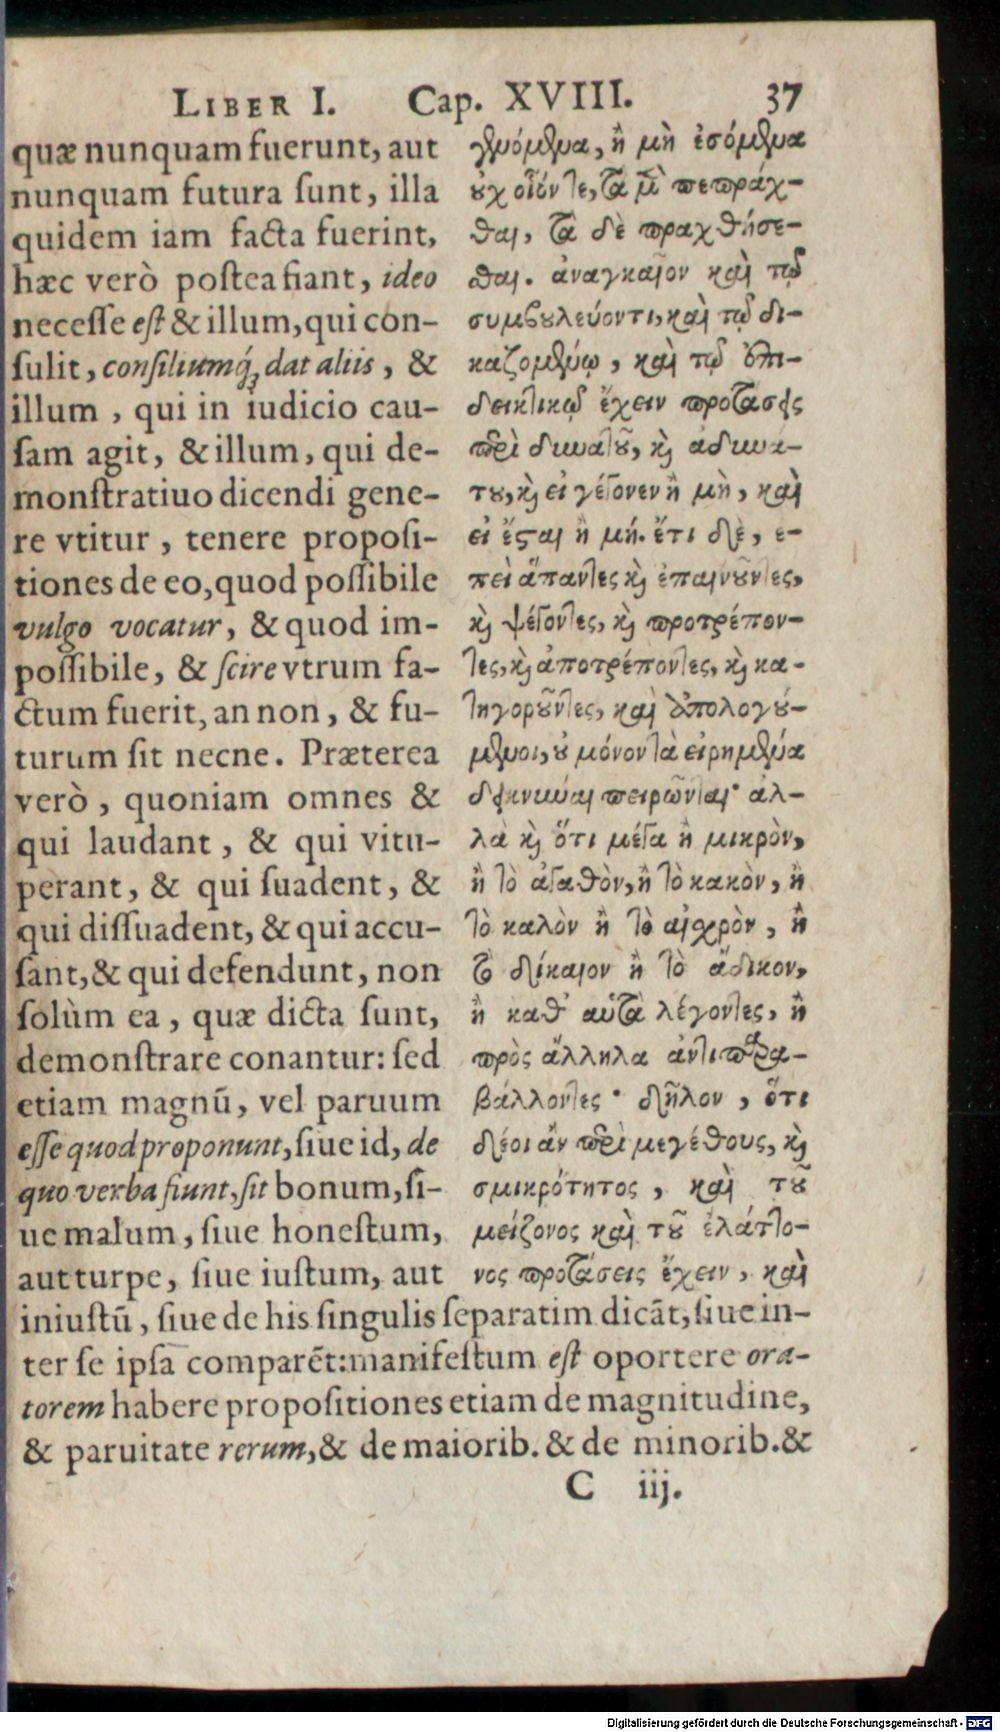 LIBER I. Cap. XVIII. 37
quæ nunquam fuerunt, aut
nunquam futura ſunt, illa
quidem iam facta fuerint,
hæc verò poſtea fiant, ideo
neceſſe eſt & illum, qui con-
ſulit, conſiliumq́; dat aliis, &
illum, qui in iudicio cau-
ſam agit, & illum, qui de-
monſtratiuo dicendi gene-
re vtitur, tenere propoſi-
tiones de eo, quod poſſibile
vulgo vocatur, & quod im-
poſſibile, & ſcire vtrum fa-
ctum fuerit, an non, & fu-
turum ſit necne. Præterea
verò, quoniam omnes &
qui laudant, & qui vitu-
perant, & qui ſuadent, &
qui diſſuadent, & qui accu-
ſant, & qui defendunt, non
ſolùm ea, quæ dicta ſunt,
demonſtrare conantur: ſed
etiam magnũ, vel paruum
eſſe quod proponunt, ſiue id, de
quo verba fiunt, ſit bonum, ſi-
ue malum, ſiue honeſtum,
aut turpe, ſiue iuſtum, aut
γενόμενα, ἢ μὴ ἐσόμενα
οὐχ οἷόν τε, τὰ μὲν πεπράχ-
θαι, τὰ δὲ πραχθήσε-
σθαι. ἀναγκαῖον καὶ τῷ
συμβουλεύοντι, καὶ τῷ δι-
καζομένῳ, καὶ τῷ ἐπι-
δεικτικῷ ἔχειν προτάσεις
περὶ δυνατοῦ, καὶ ἀδυνά-
του, καὶ εἰ γέγονεν ἢ μὴ, καὶ
εἰ ἔσται ἢ μή. ἔτι δὲ, ἐ-
πεὶ ἅπαντες καὶ ἐπαινοῦντες,
καὶ ψέγοντες, καὶ προτρέπον-
τες, καὶ ἀποτρέποντες, καὶ κα-
τηγοροῦντες, καὶ ἀπολογού-
μενοι, οὐ μόνον τὰ εἰρημένα
δεικνύναι πειρῶνται· ἀλ-
λὰ καὶ ὅτι μέγα ἢ μικρὸν,
ἢ τὸ ἀγαθὸν, ἢ τὸ κακὸν, ἢ
τὸ καλὸν ἢ τὸ αἰσχρὸν, ἢ
τὸ δίκαιον ἢ τὸ ἄδικον,
ἢ καθ᾽ αὑτὰ λέγοντες, ἢ
πρὸς ἄλληλα ἀντιπαρα-
βάλλοντες· δῆλον, ὅτι
δέοι ἂν περὶ μεγέθους, καὶ
σμικρότητος, καὶ τοῦ
μείζονος καὶ τοῦ ἐλάττο-
νος προτάσεις ἔχειν, καὶ
iniuſtũ, ſiue de his ſingulis ſeparatim dicãt, ſiue in-
ter ſe ipſa comparẽt: manifeſtum eſt oportere ora-
torem habere propoſitiones etiam de magnitudine,
& paruitate rerum, & de maiorib. & de minorib. &
C iij.
Digitalisierung gefördert durch die Deutsche Forschungsgemeinschaft - DFG